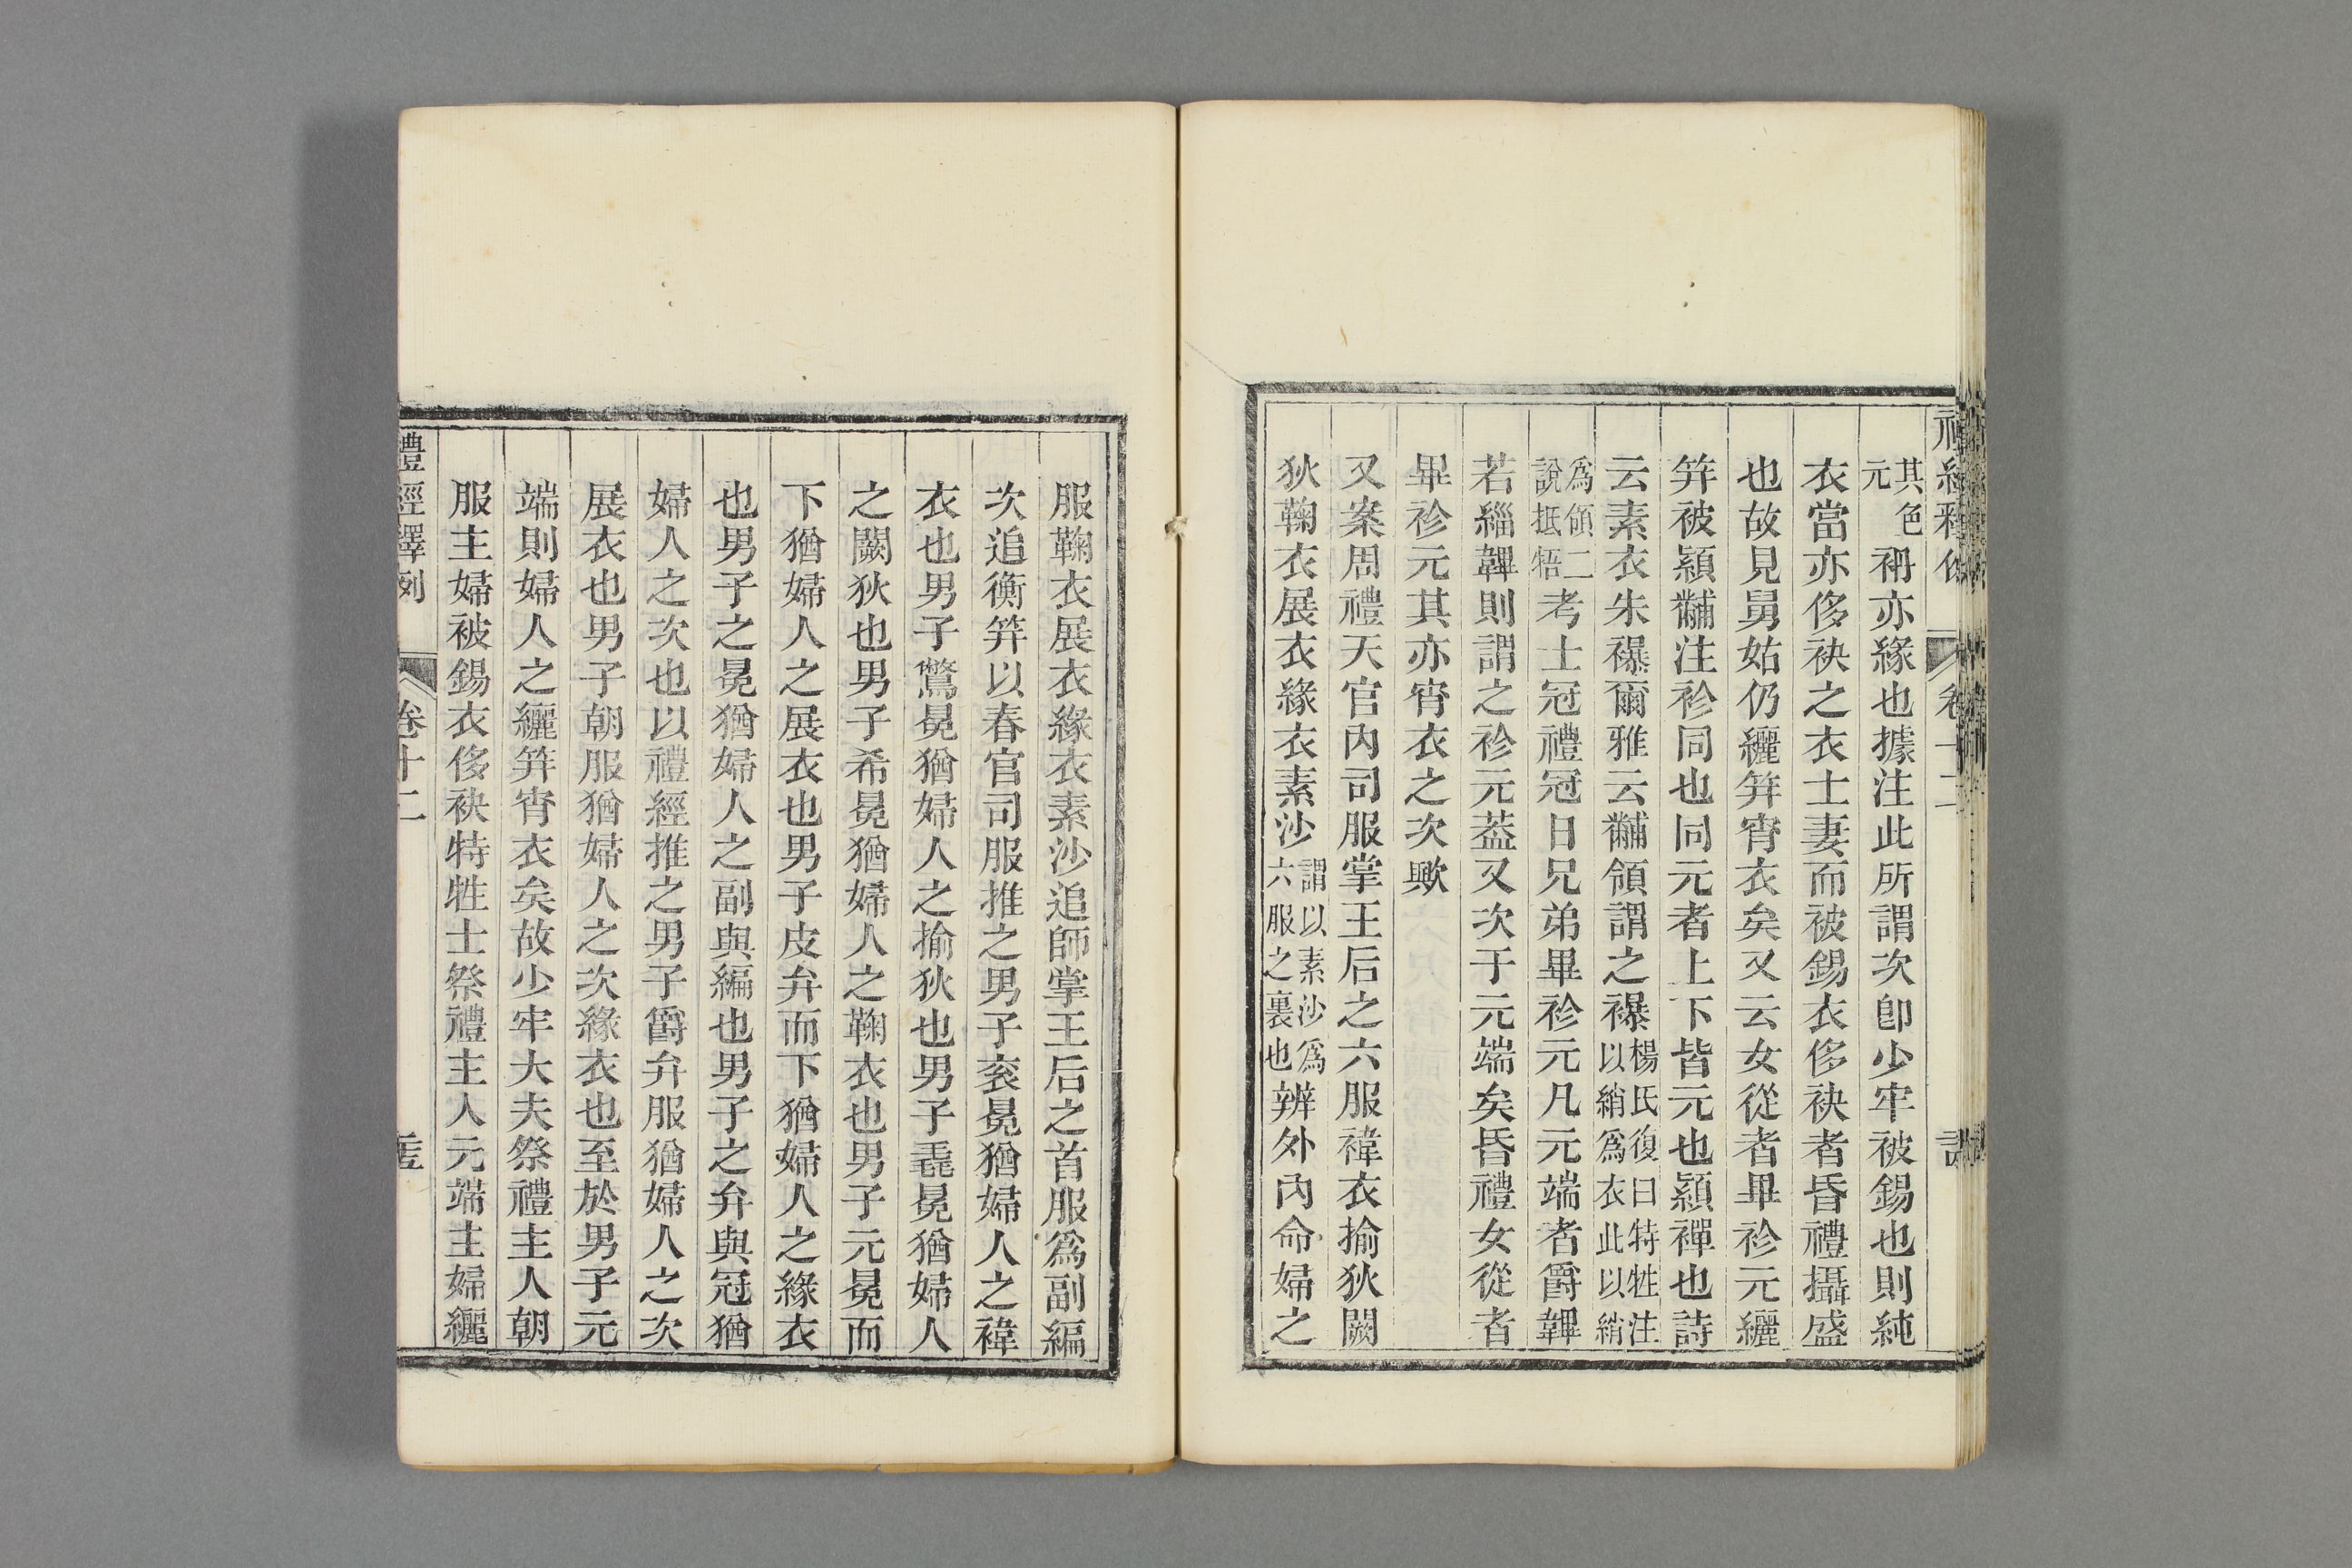 其色元袡亦緣也據注此所謂次卽少牢被錫也則純
衣當亦侈袂之衣士妻而被錫衣侈袂者昏禮攝盛
也故見舅姑仍纚笄宵衣矣又云女從者畢袗元纚
笄被顈黼注袗同也同元者上下皆元也顈禪也詩
云素衣朱襮爾雅云黼領謂之襮楊氏復曰特牲注以綃爲衣此以綃
爲領二說抵牾考士冠禮冠日兄弟畢袗元凡元端者爵韠
若緇韠則謂之袗元葢又次于元端矣昏禮女從者
畢袗元其亦宵衣之次歟
又案周禮天官內司服掌王后之六服褘衣揄狄闕
狄鞠衣展衣緣衣素沙謂以素沙爲六服之裏也辨外內命婦之
服鞠衣展衣緣衣素沙追師掌王后之首服爲副編
次追衡笄以春官司服推之男子衮冕猶婦人之褘
衣也男子鷩冕猶婦人之揄狄也男子毳冕猶婦人
之闕狄也男子希冕猶婦人之鞠衣也男子元冕而
下猶婦人之展衣也男子皮弁而下猶婦人之緣衣
也男子之冕猶婦人之副與編也男子之弁與冠猶
婦人之次也以禮經推之男子爵弁服猶婦人之次
展衣也男子朝服猶婦人之次緣衣也至於男子元
端則婦人之纚笄宵衣矣故少牢大夫祭禮主人朝
服主婦被錫衣侈袂特牲士祭禮主人元端主婦纚
禮經釋例 卷十二